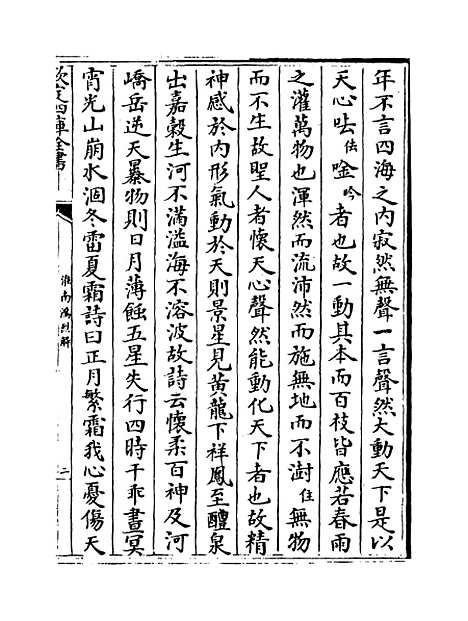 年不言四海之内寂然無聲一言聲然大動天下是以
天心呿佉唫吟者也故一動其本而百枝皆應若春雨
之灌萬物也渾然而流沛然而施無地而不澍住無物
而不生故聖人者懷天心聲然能動化天下者也故精
神感於内形氣動於天則景星見黃龍下祥鳳至醴泉
出嘉穀生河不滿溢海不溶波故詩云懷柔百神及河
嶠岳逆天暴物則日月薄蝕五星失行四時干乖晝冥
宵光山崩水涸冬雷夏霜詩曰正月繁霜我心憂傷天
欽定四庫全書
淮南鴻烈解
二